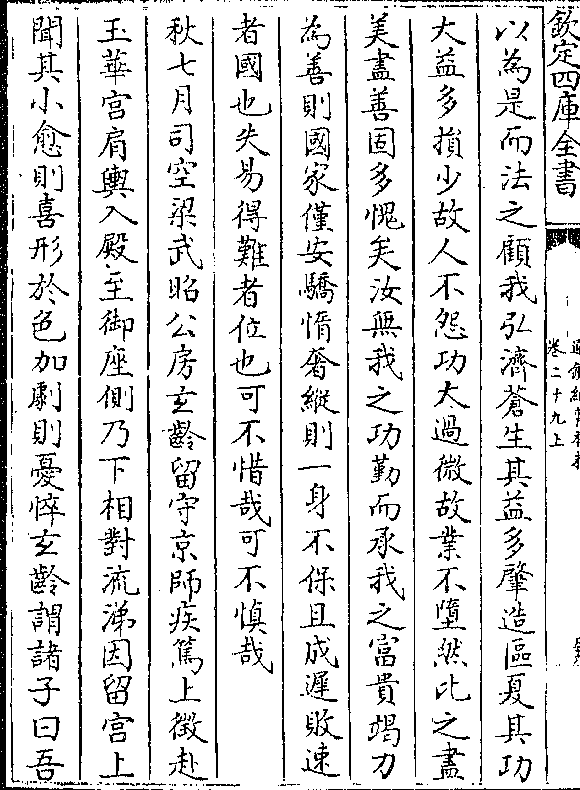 欽定四庫全書
卷二十九上
以為是而法之顧我弘濟蒼生其益多肇造區夏其功
大益多損少故人不怨功大過微故業不墮然比之盡
美盡善固多愧矣汝無我之功勤而承我之富貴竭力
為善則國家僅安驕惰奢縱則一身不保且成遲敗速
者國也失易得難者位也可不惜哉可不慎哉
秋七月司空梁武昭公房玄齡留守京師疾篤上徵赴
玉華宫肩輿入殿至御座側乃下相對流涕因留宫上
聞其小愈則喜形於色加劇則憂悴玄齡謂諸子曰吾